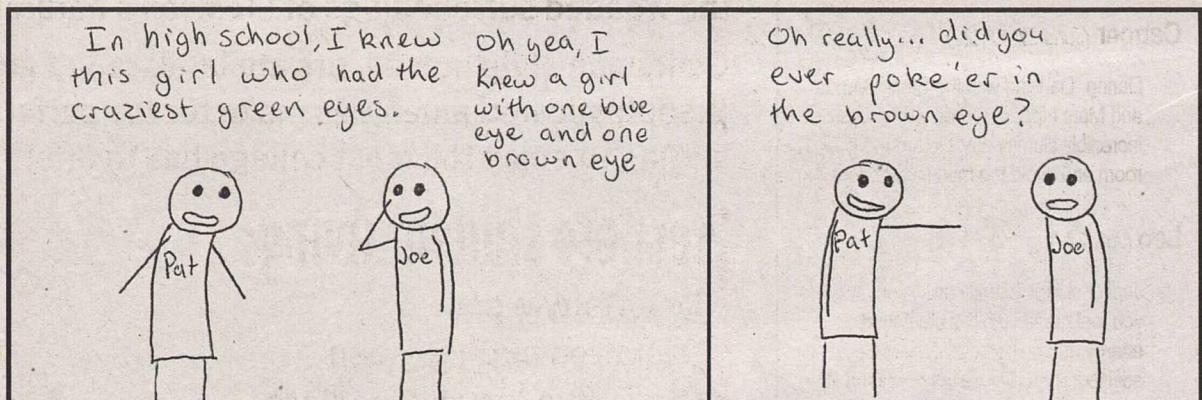 In high school, I knew
this girl who had the
craziest green eyes.
Oh yea, I
knew a girl
with one blue
eye and one
brown eye
Pat
Joe
Oh really... did you
ever poke 'er in
the brown eye?
Pat
Joe